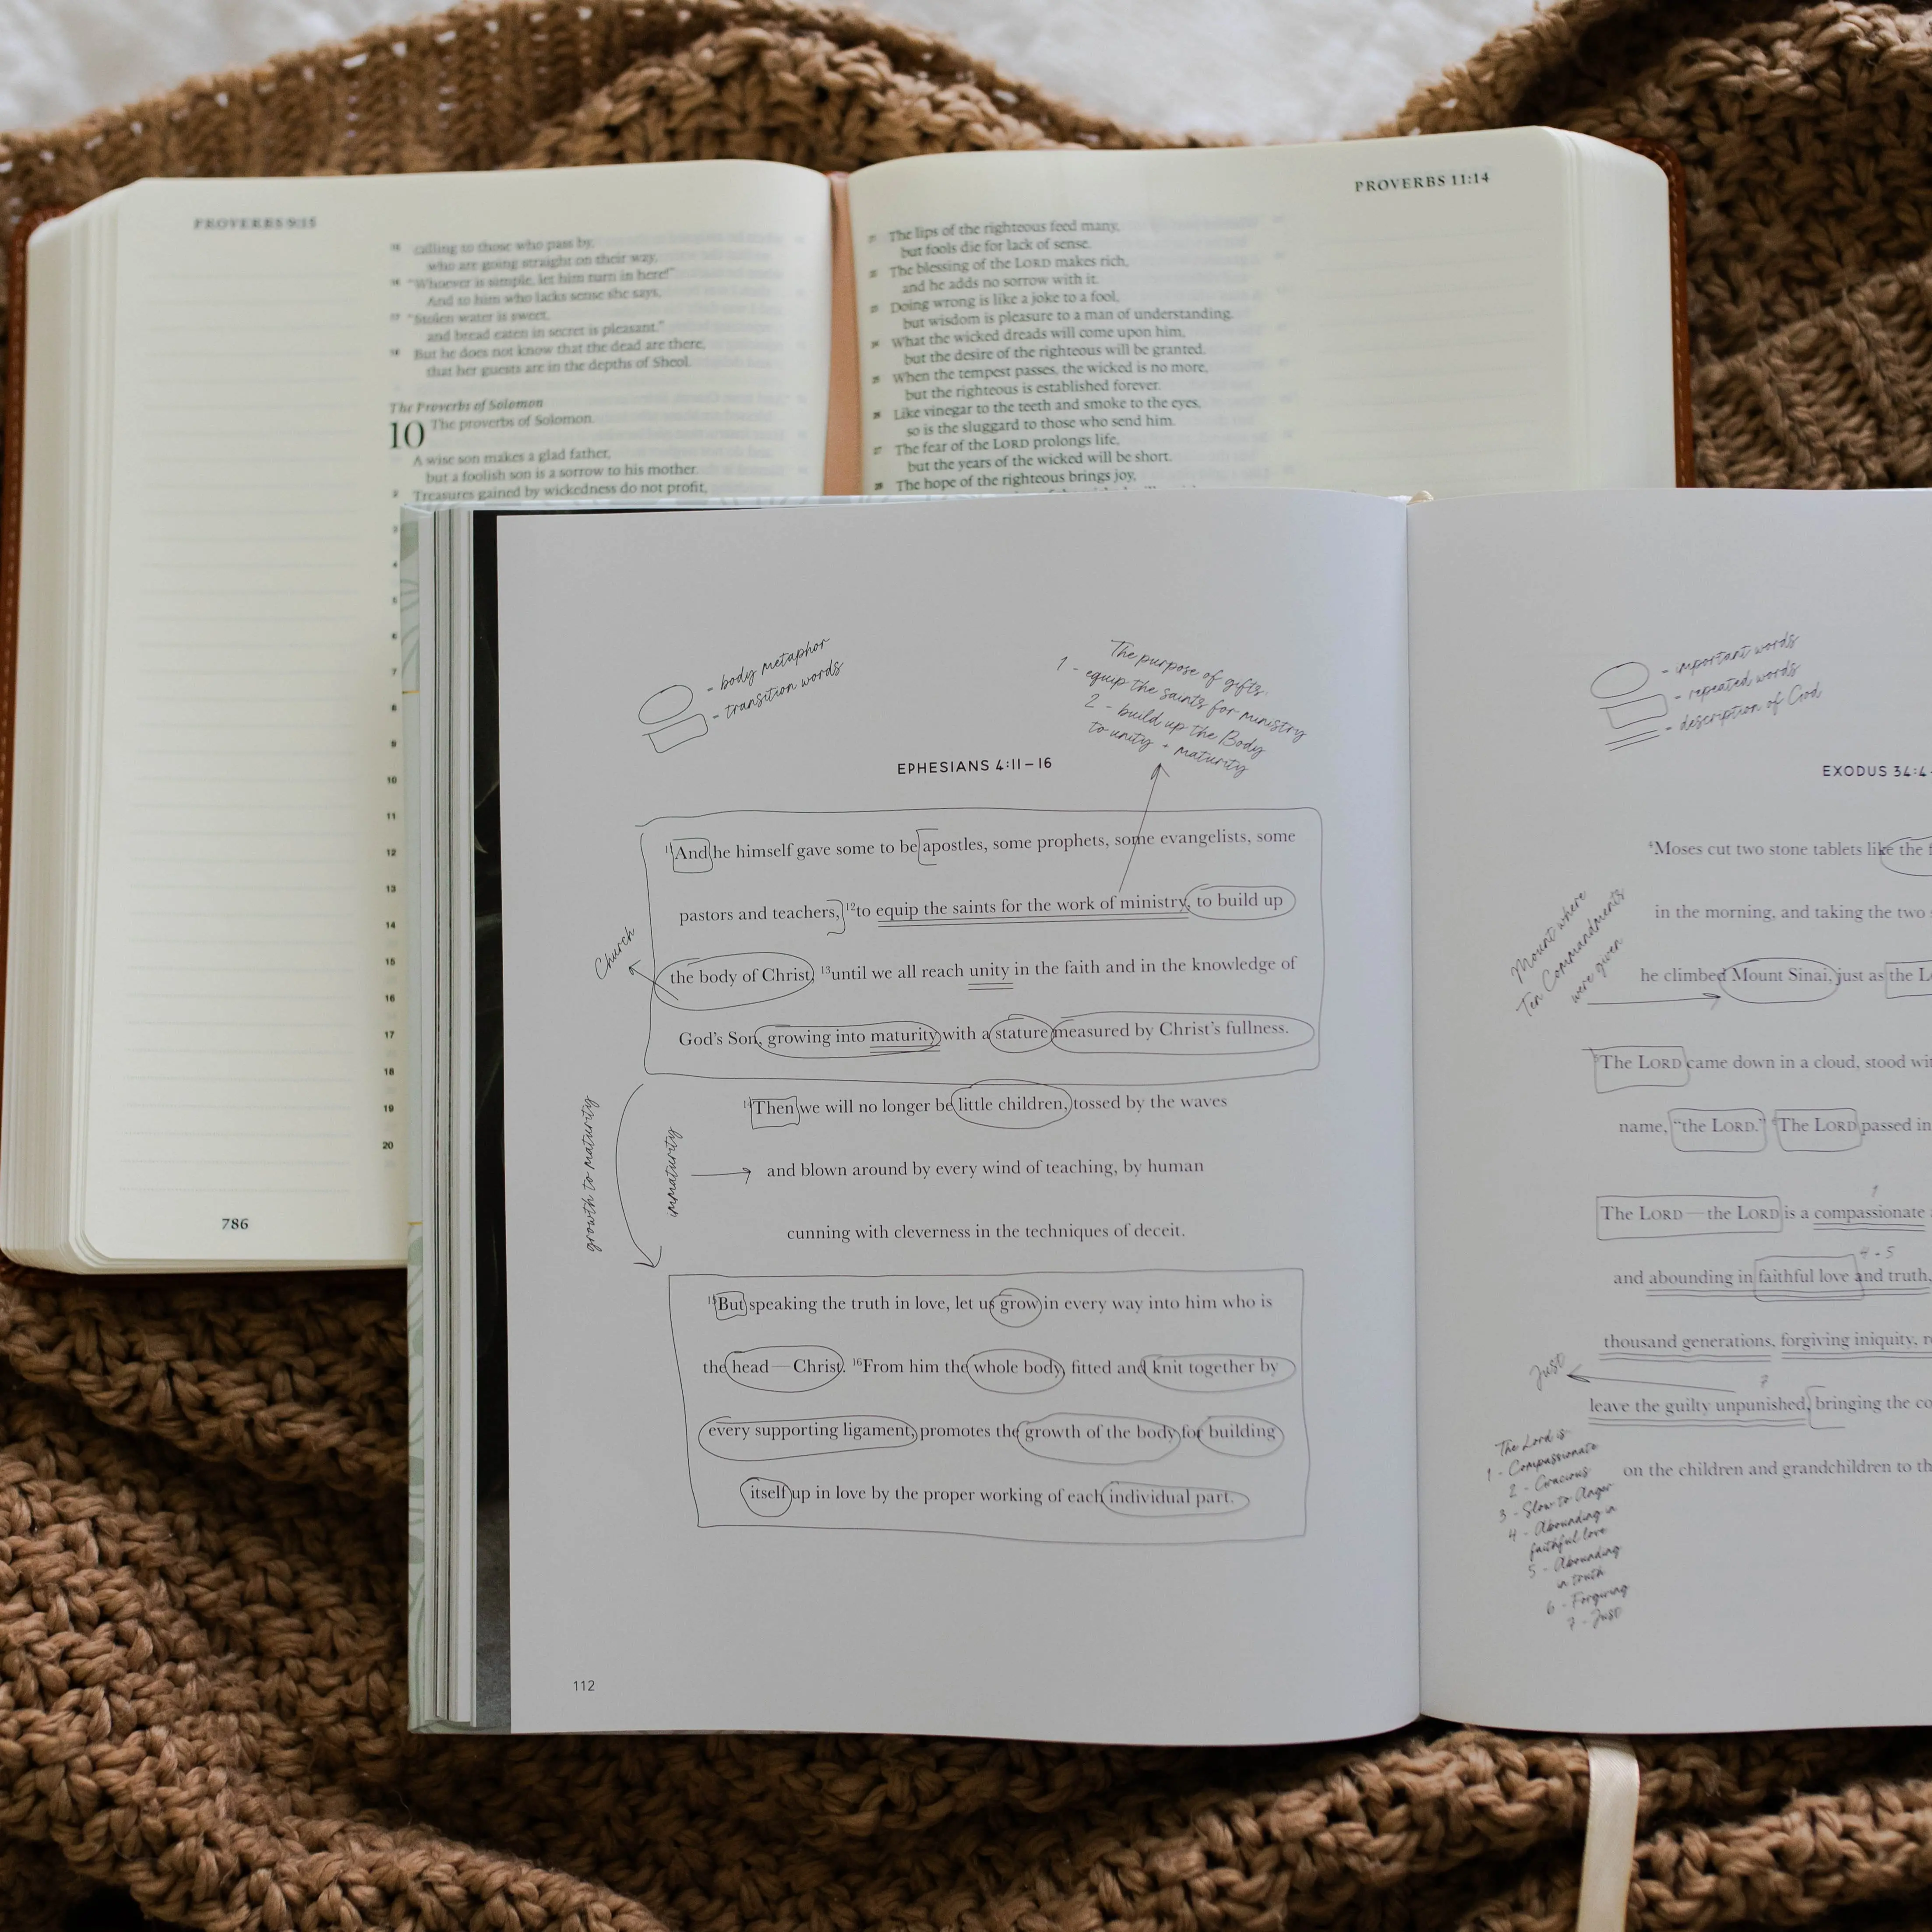 PROVERBS 9:15
15 calling to those who pass by,
who are going straight on their way,
16 "Whoever is simple, let him turn in here!"
And to him who lacks sense she says,
17 "Stolen water is sweet,
and bread eaten in secret is pleasant."
18 But he does not know that the dead are there,
that her guests are in the depths of Sheol.
The Proverbs of Solomon
10 The proverbs of Solomon.
A wise son makes a glad father,
but a foolish son is a sorrow to his mother.
2 Treasures gained by wickedness do not profit,
3
4
5
6
7
8
9
10
11
12
13
14
15
16
17
18
19
20
786
PROVERBS 11:14
21 The lips of the righteous feed many,
but fools die for lack of sense.
22 The blessing of the LORD makes rich,
and he adds no sorrow with it.
23 Doing wrong is like a joke to a fool,
but wisdom is pleasure to a man of understanding.
24 What the wicked dreads will come upon him,
but the desire of the righteous will be granted.
25 When the tempest passes, the wicked is no more,
but the righteous is established forever.
26 Like vinegar to the teeth and smoke to the eyes,
so is the sluggard to those who send him.
27 The fear of the LORD prolongs life,
but the years of the wicked will be short.
28 The hope of the righteous brings joy,
- body metaphor
- transition words
The purpose of gifts:
1 - equip the saints for ministry
2 - build up the Body
to unity + maturity
EPHESIANS 4:11–16
11And he himself gave some to be apostles, some prophets, some evangelists, some
pastors and teachers, 12to equip the saints for the work of ministry, to build up
the body of Christ, 13until we all reach unity in the faith and in the knowledge of
God's Son, growing into maturity with a stature measured by Christ's fullness.
14Then we will no longer be little children, tossed by the waves
and blown around by every wind of teaching, by human
cunning with cleverness in the techniques of deceit.
15But speaking the truth in love, let us grow in every way into him who is
the head—Christ. 16From him the whole body, fitted and knit together by
every supporting ligament, promotes the growth of the body for building
itself up in love by the proper working of each individual part.
Church
growth to maturity
immaturity
112
- important words
- repeated words
- description of God
EXODUS 34:4
4Moses cut two stone tablets like the
in the morning, and taking the two
he climbed Mount Sinai, just as the
5The LORD came down in a cloud, stood
name, "the LORD." 6The LORD passed in
The LORD—the LORD is a compassionate
and abounding in faithful love and truth,
thousand generations, forgiving iniquity,
leave the guilty unpunished, bringing the
on the children and grandchildren to
Mount where
Ten Commandments
were given
1
4 + 5
7
Just
The Lord is
1 - Compassionate
2 - Gracious
3 - Slow to Anger
4 - Abounding in
faithful love
5 - Abounding
in truth
6 - Forgiving
7 - Just